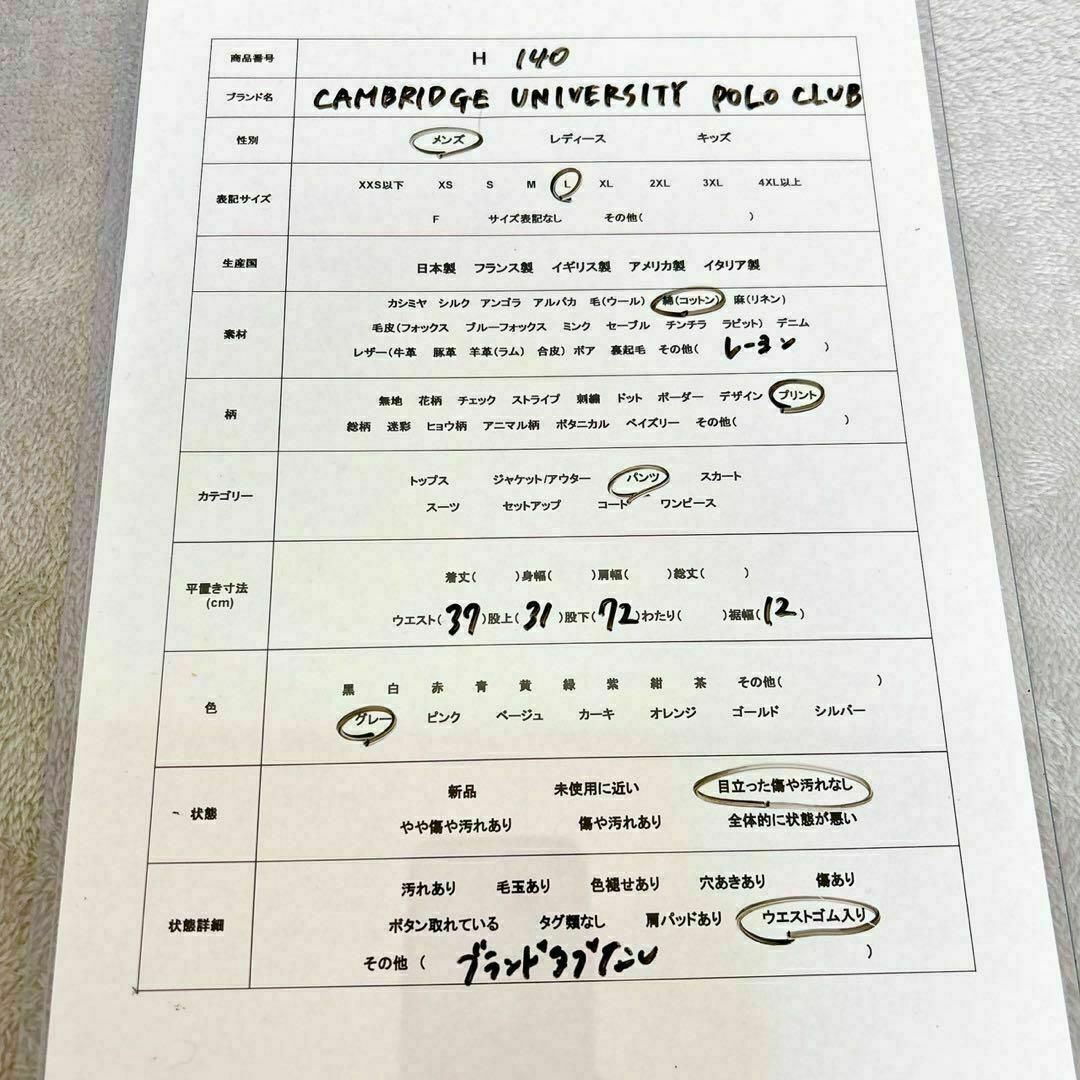 商品番号 H 140
ブランド名 CAMBRIDGE UNIVERSITY POLO CLUB
性別 メンズ レディース キッズ
表記サイズ
XXS以下 XS S M L XL 2XL 3XL 4XL以上
F サイズ表記なし その他( )
生産国 日本製 フランス製 イギリス製 アメリカ製 イタリア製
素材
カシミヤ シルク アンゴラ アルパカ 毛(ウール) 綿(コットン) 麻(リネン)
毛皮(フォックス ブルーフォックス ミンク セーブル チンチラ ラビット) デニム
レザー(牛革 豚革 羊革(ラム) 合皮) ボア 裏起毛 その他( レーヨン )
柄
無地 花柄 チェック ストライプ 刺繍 ドット ボーダー デザイン プリント
総柄 迷彩 ヒョウ柄 アニマル柄 ボタニカル ペイズリー その他( )
カテゴリー
トップス ジャケット/アウター パンツ スカート
スーツ セットアップ コート ワンピース
平置き寸法
(cm)
着丈( )身幅( )肩幅( )総丈( )
ウエスト( 37 )股上( 31 )股下( 72 )わたり( )裾幅( 12 )
色
黒 白 赤 青 黄 緑 紫 紺 茶 その他( )
グレー ピンク ベージュ カーキ オレンジ ゴールド シルバー
状態
新品 未使用に近い 目立った傷や汚れなし
やや傷や汚れあり 傷や汚れあり 全体的に状態が悪い
状態詳細
汚れあり 毛玉あり 色褪せあり 穴あきあり 傷あり
ボタン取れている タグ類なし 肩パッドあり ウエストゴム入り
その他 ( ブランドタグなし )